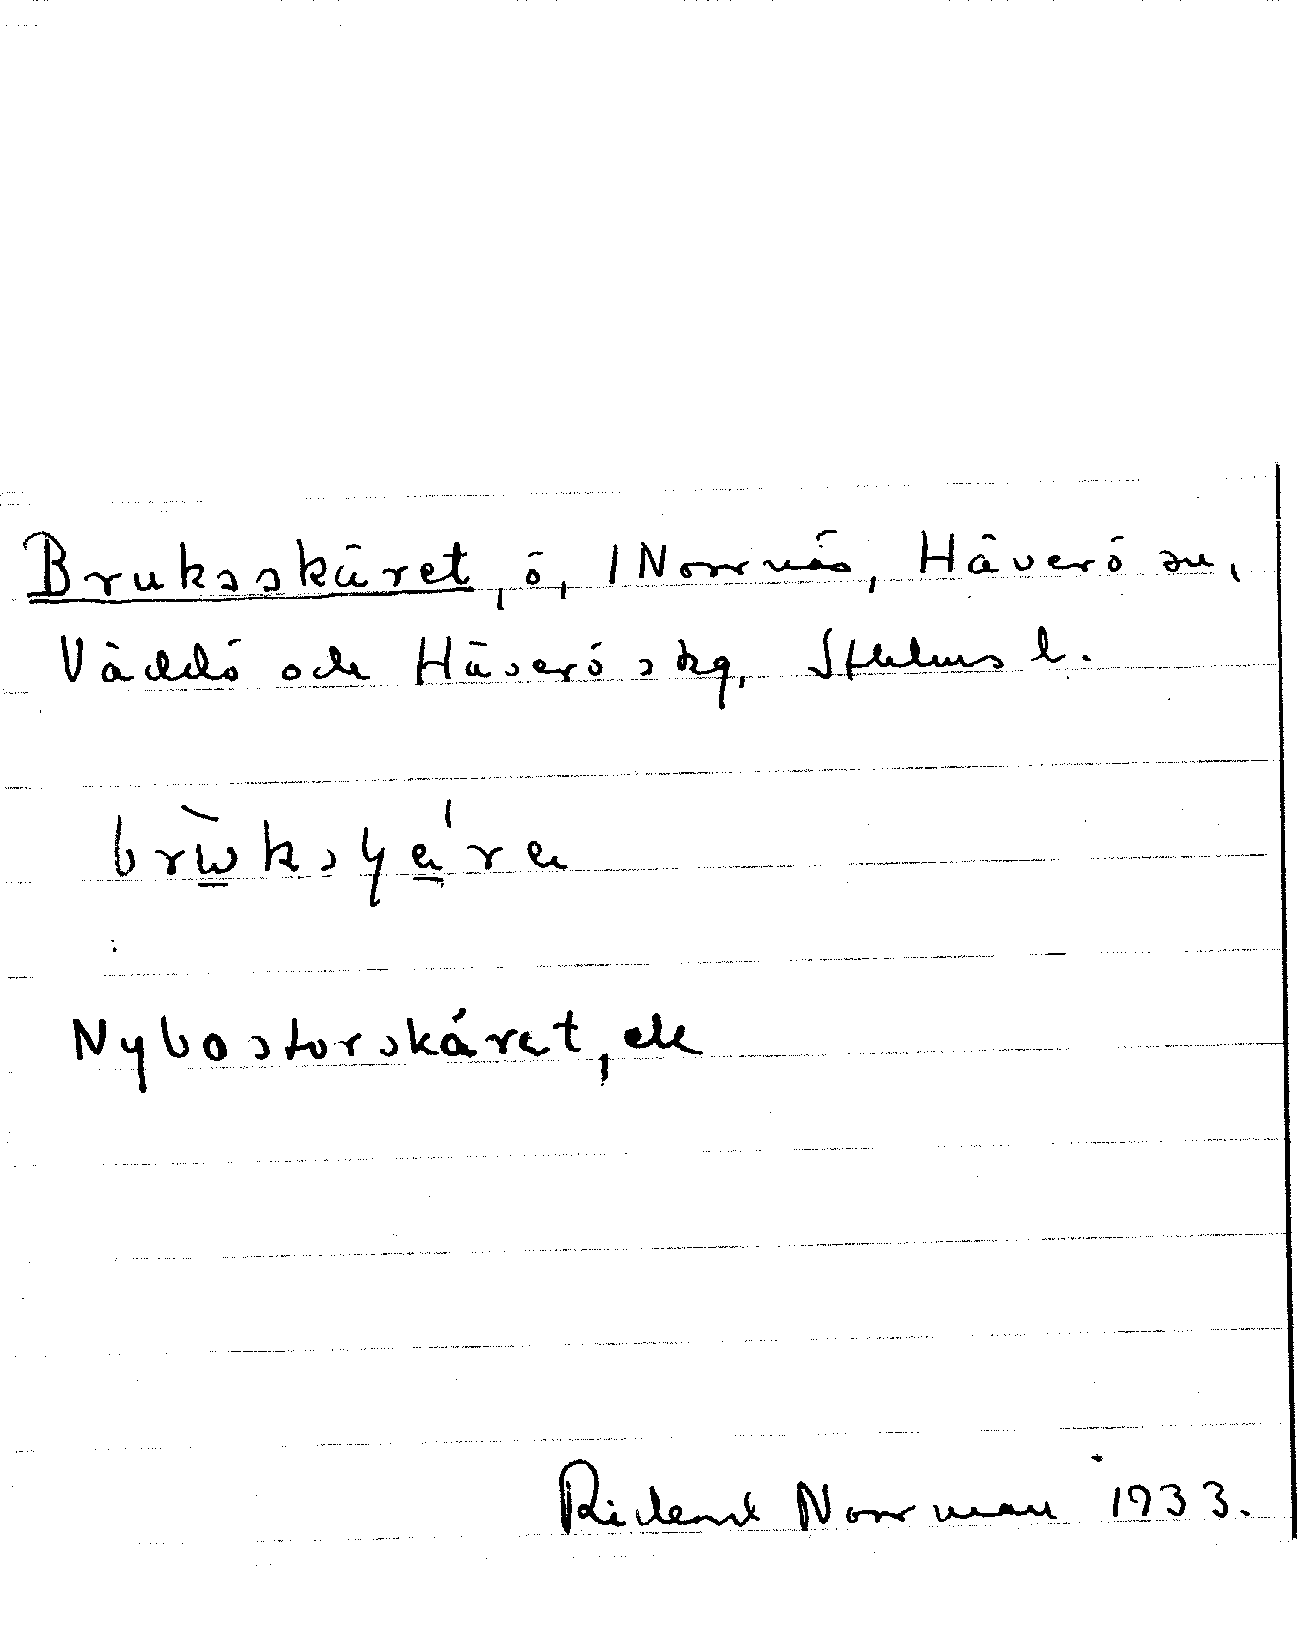 Bruksskäret, ö, 1 Norrnäs, Häverö sn,
Väddö och Häverö skg, Sthlms l.
Nybostorskäret, ett
Rickard Norrman 1933.